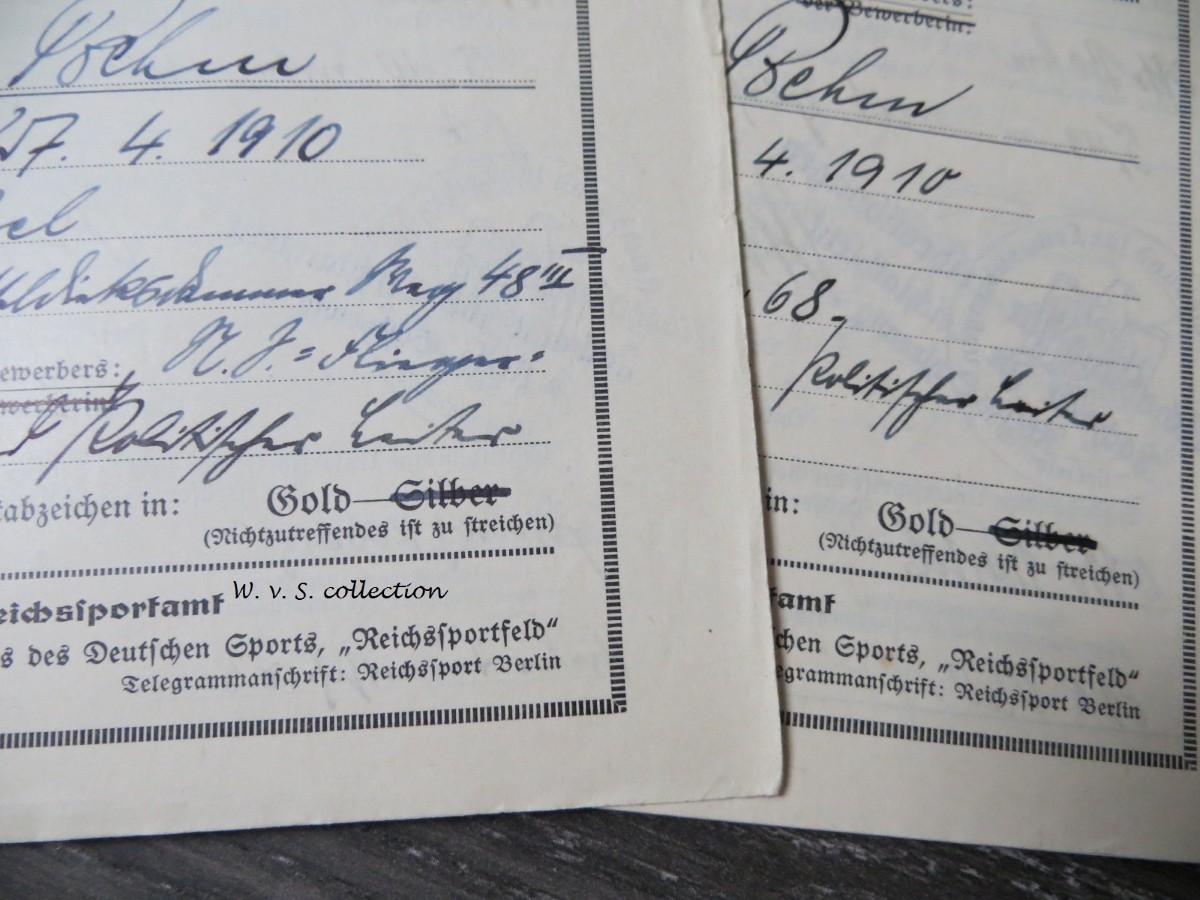 27. 4. 1910
48 III
ewerbers: N. S. = Flieger =
Politischer Leiter
abzeichen in: Gold Silber
(Nichtzutreffendes ist zu streichen)
eichssportamt
W. v. S. collection
s des Deutschen Sports, „Reichssportfeld“
Telegrammanschrift: Reichssport Berlin
der Bewerberin:
4. 1910
68.
Politischer Leiter
in: Gold Silber
(Nichtzutreffendes ist zu streichen)
amt
chen Sports, „Reichssportfeld“
egrammanschrift: Reichssport Berlin